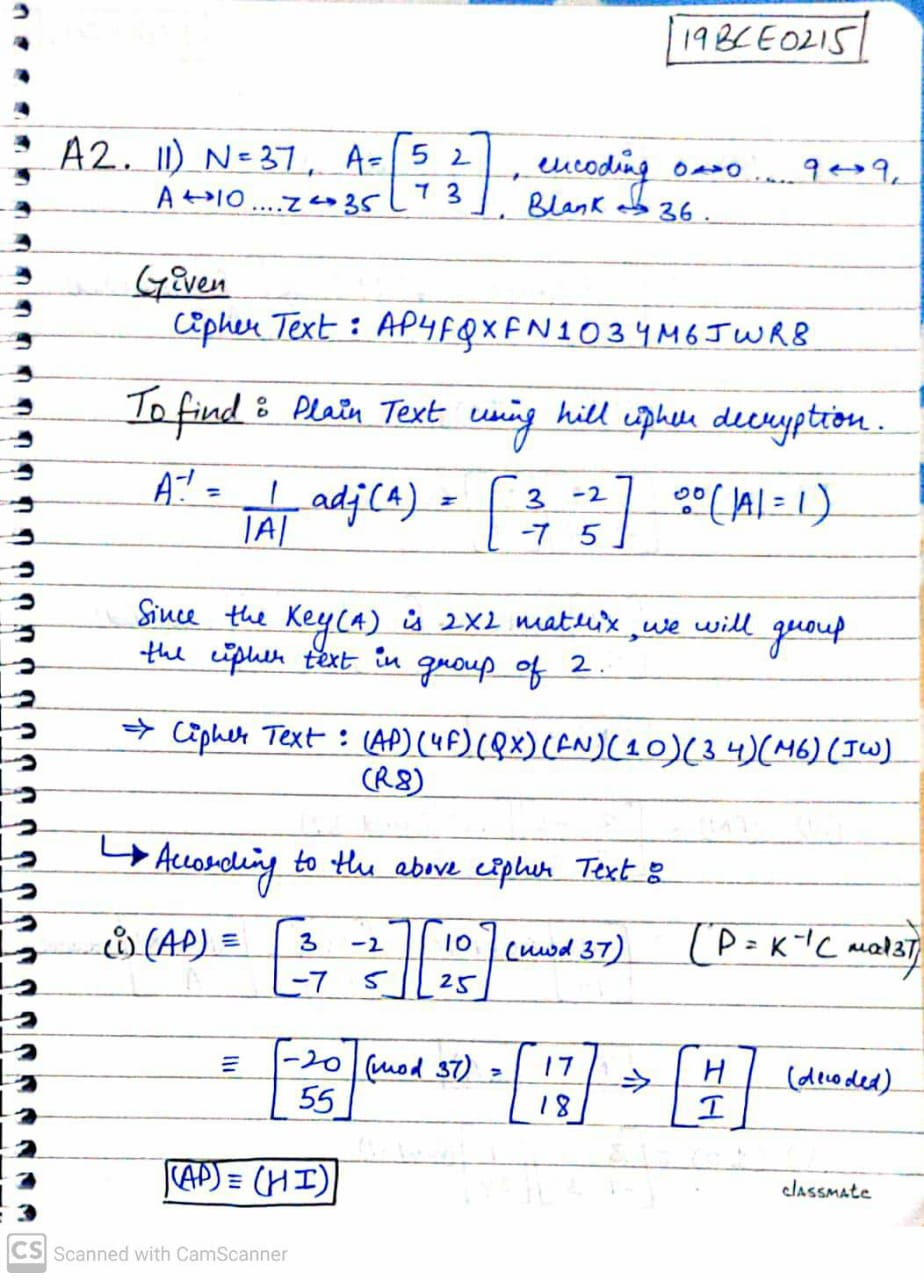 19BCE0215
A2. 11) N=37, A= [5 2; 7 3], encoding 0↔0.... 9↔9,
A↔10....Z↔35. Blank ↔ 36.
Given
Cipher Text : AP4FQXFN1034M6JWR8
To find : Plain Text using hill cipher decryption.
A⁻¹ = 1/|A| adj(A) = [3 -2; -7 5] ∵ (|A|=1)
Since the Key(A) is 2X2 matrix, we will group
the cipher text in group of 2.
⇒ Cipher Text : (AP)(4F)(QX)(FN)(10)(34)(M6)(JW)
(R8)
↳ According to the above cipher Text :
(i) (AP) ≡ [3 -2; -7 5] [10; 25] (mod 37) (P = K⁻¹C mod 37)
≡ [-20; 55] (mod 37) = [17; 18] ⇒ [H; I] (decoded)
(AP) ≡ (HI)
classmate
CS Scanned with CamScanner